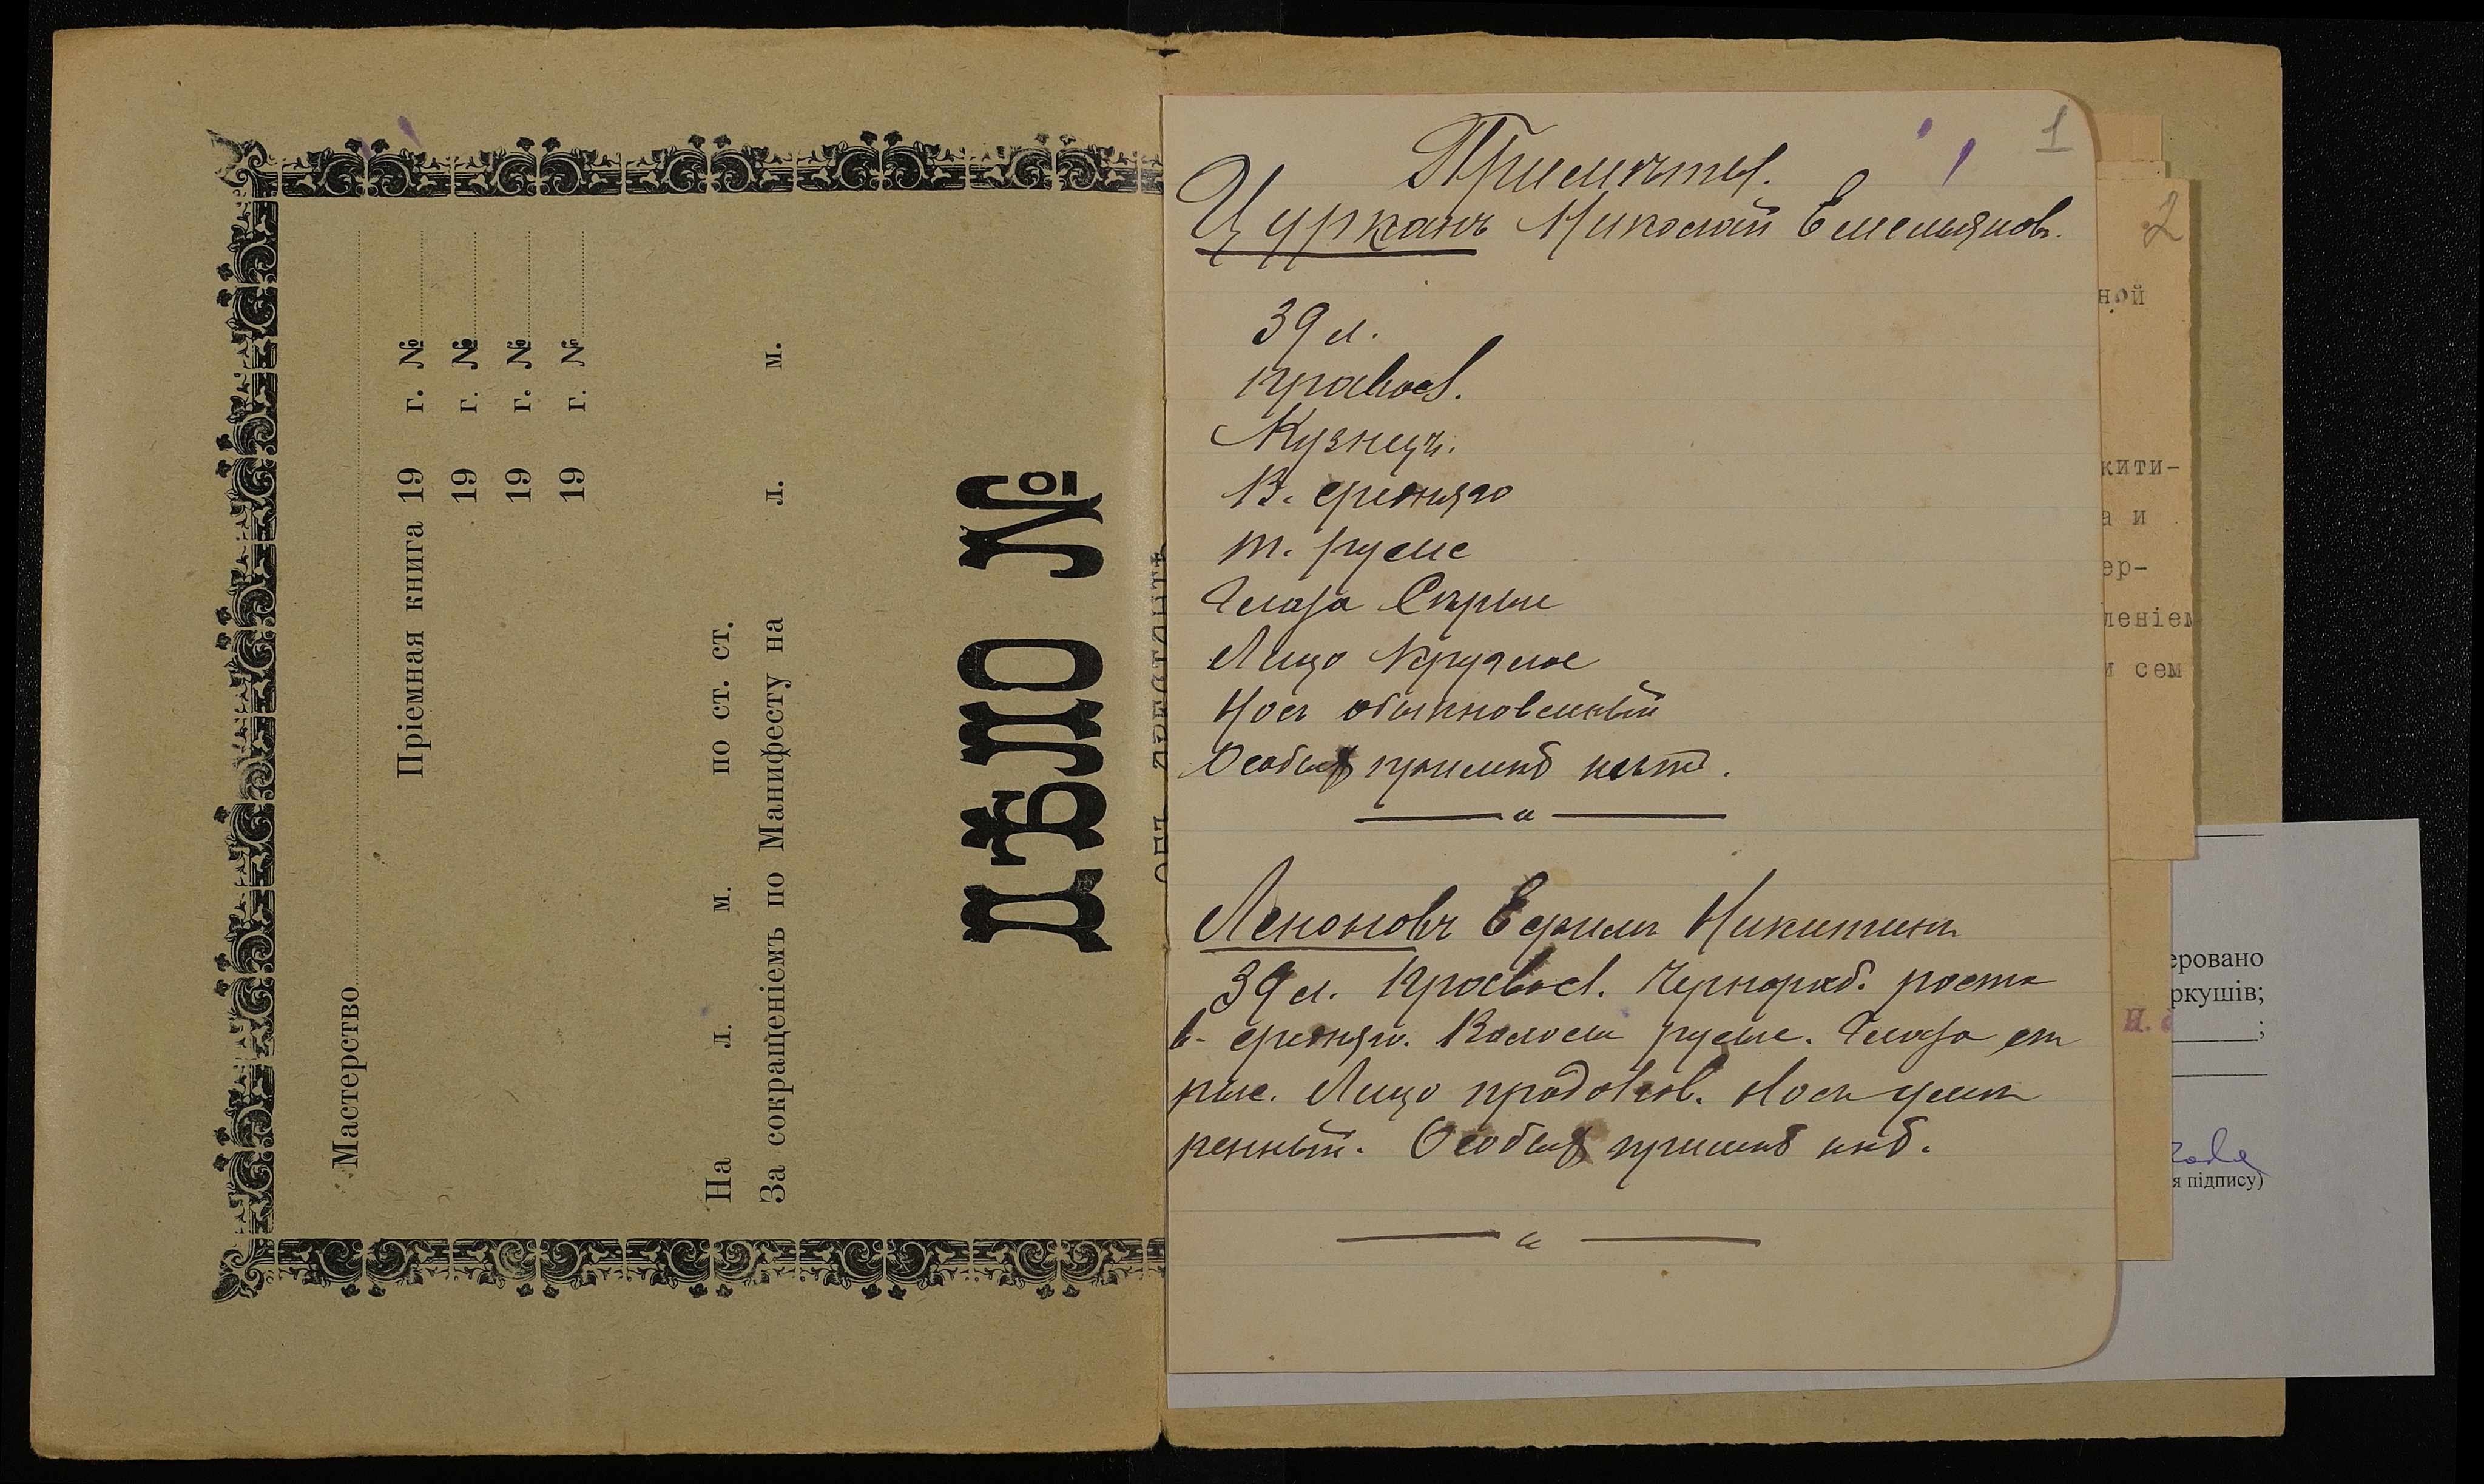 Мастерство
Пріемная книга 19 г. №
19 г. №
19 г. №
19 г. №
На л. м. по ст. ст.
За сокращеніемъ по Манифесту на л. м.
ДѢЛО №
1
Примѣты.
Цурканъ Николай Емельяновъ.
39 л.
правосл.
Кузнецъ.
В. средняго
т. русые
Глаза Сѣрые
Лицо Круглое
Носъ обыкновенный
Особыхъ примѣтъ нѣтъ.
Леноновъ Ефимъ Никитинъ
39 л. Правосл. Чернораб. роста
в. средняго. Волосы русые. Глаза сѣ
рые. Лицо продолгов. Носъ умѣ
ренный. Особыхъ примѣтъ нѣтъ.
2
ной
кити-
а и
ер-
леніем
и сем
еровано
ркушів;
;
я підпису)